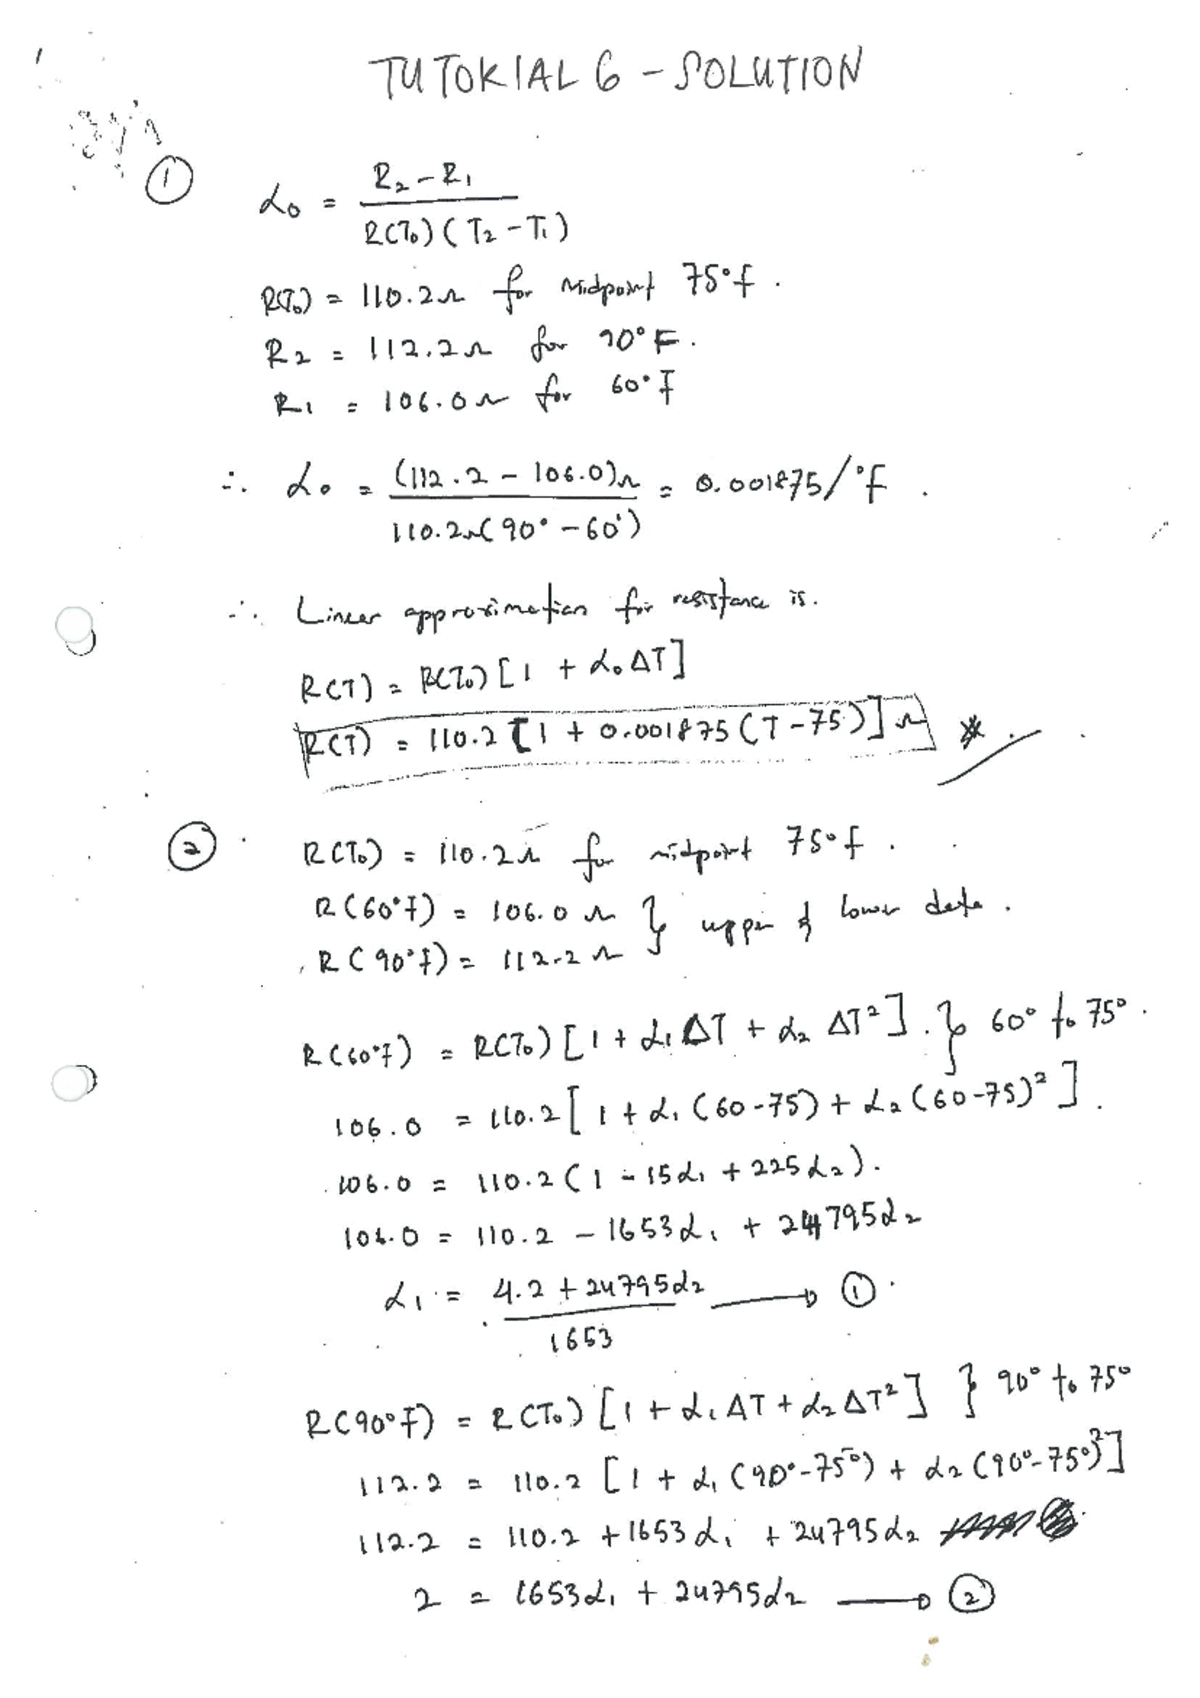 TUTORIAL 6 - SOLUTION
① α₀ = (R₂ - R₁) / (R(T₀) (T₂ - T₁))
R(T₀) = 110.2Ω for midpoint 75°F.
R₂ = 112.2Ω for 90°F.
R₁ = 106.0Ω for 60°F
∴ α₀ = (112.2 - 106.0)Ω / 110.2Ω(90° - 60°) = 0.001875/°F.
∴ Linear approximation for resistance is.
R(T) = R(T₀) [1 + α₀ΔT]
R(T) = 110.2 [1 + 0.001875 (T - 75)] Ω
② R(T₀) = 110.2Ω for midpoint 75°F.
R(60°F) = 106.0Ω } upper & lower data.
R(90°F) = 112.2Ω
R(60°F) = R(T₀) [1 + α₁ΔT + α₂ ΔT²]. } 60° to 75°.
106.0 = 110.2 [1 + α₁ (60-75) + α₂ (60-75)²].
106.0 = 110.2 (1 - 15α₁ + 225α₂).
106.0 = 110.2 - 1653α₁ + 24795α₂
α₁ = (4.2 + 24795α₂) / 1653 → ①
R(90°F) = R(T₀) [1 + α₁ΔT + α₂ΔT²] } 90° to 75°
112.2 = 110.2 [1 + α₁ (90°-75°) + α₂ (90°-75°)²]
112.2 = 110.2 + 1653α₁ + 24795α₂
2 = 1653α₁ + 24795α₂ → ②